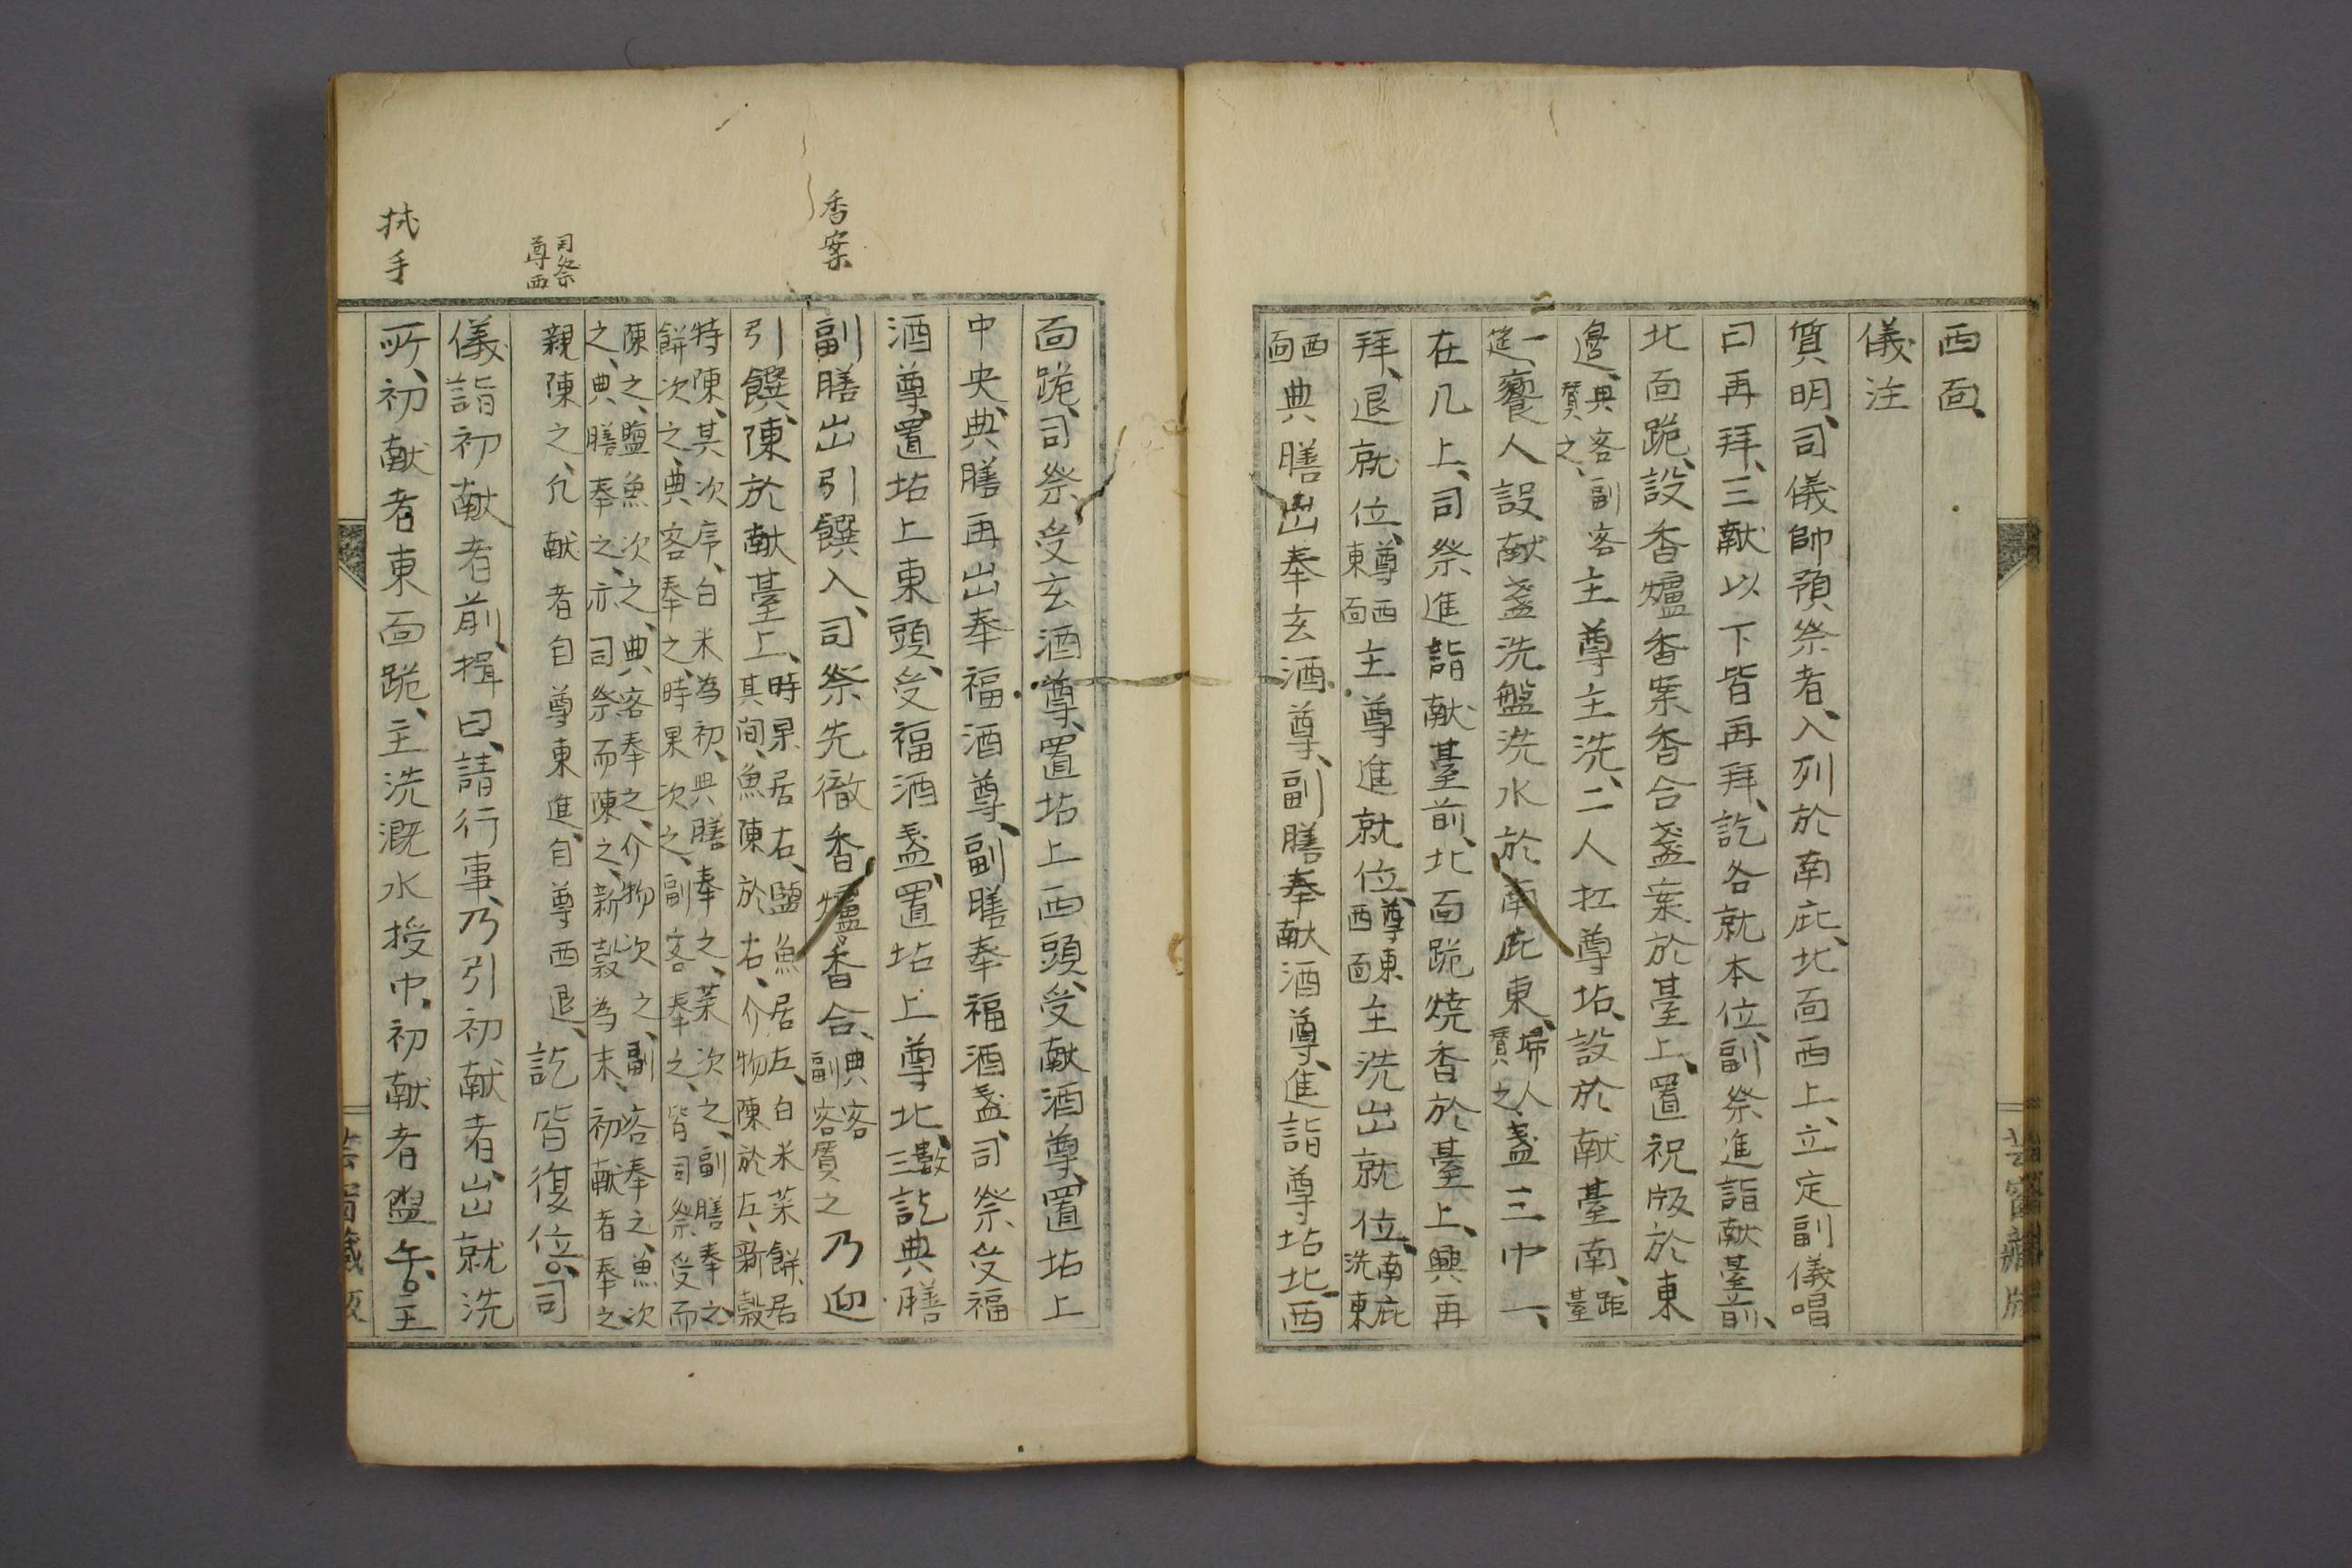 西面、
儀注
質明、司儀帥預祭者、入列於南庇、北面西上、立定副儀唱
曰再拜、三献以下皆再拜、訖各就本位、副祭進詣献臺前、
北面跪、設香爐香案香合盞案於臺上、置祝版於東
邊、典客副客賛之、主尊主洗、二人扛尊坫、設於献臺南、距臺
一筵、饔人設献盞洗盤洗水於南庇東、掃人賛之、盞三巾一、
在几上、司祭進詣献臺前、北面跪焼香於臺上、興再
拜、退就位、尊西東面主尊進就位、尊東西面主洗出就位、南庇洗東
西面典膳出奉玄酒尊、副膳奉献酒尊、進詣尊坫北、西
香案
司祭尊西
拭手
面跪、司祭受玄酒尊、置坫上西頭、受献酒尊、置坫上
中央、典膳再出奉福酒尊、副膳奉福酒盞、司祭受福
酒尊、置坫上東頭、受福酒盞、置坫上尊北、数三訖典膳
副膳出引饌入、司祭先徹香爐香合、典客副客賛之乃迎
引饌、陳於献臺上、時果居右、鹽魚居左、白米菜餅、居其間、魚陳於右、介物陳於左、新穀
特陳、其次序、白米為初、典膳奉之、菜次之、副膳奉之、餅次之、典客奉之、時果次之、副客奉之、皆司祭受而
陳之、鹽魚次之、典客奉之、介物次之、副客奉之、魚次之、典膳奉之、亦司祭而陳之、新穀為末、初献者奉之、
親陳之、凡献者自尊東進、自尊西退、訖皆復位、司
儀詣初献者前、揖曰、請行事、乃引初献者、出就洗
所、初献者東面跪、主洗漑水授巾、初献者盥手、主
芸窗藏版